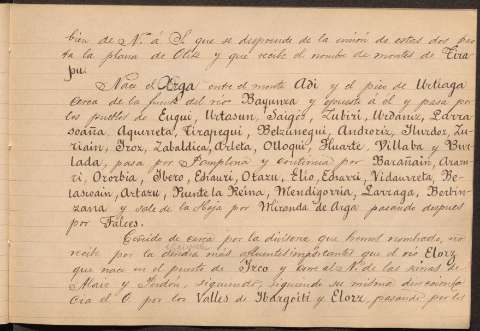 bien de N. á S. que se desprende de la unión de estas dos hasta la plana de Olite y que recibe el nombre de montes de Tirapu.
Nace el Arga entre el monte Adi y el pico de Urtiaga
cerca de la fuente del rio Bayunza y opuesto á el y pasa por
los pueblos de Eugui, Urtasun, Saigós, Zubiri, Urdániz, Larra-
soaña, Aquerreta, Tirapegui, Belzunegui, Andrériz, Ilurdoz, Zu-
riain, Iroz, Zabaldica, Arleta, Olloqui, Huarte, Villaba y Bur-
lada, pasa por Pamplona y continua por Barañain, Arazu-
ri, Ororbia, Ibero, Echauri, Otazu, Elio, Echarri, Vidaurreta, Be-
lascoain, Artazu, Puente la Reina, Mendigorria, Larraga, Berbin-
zana y sale de la Hoja por Miranda de Arga pasando despues
por Falces.
Ceñido de cerca por la divisoria que hemos nombrado, no
recibe por la derecha más afluentes importantes que el rio Elorz
que nace en el puerto de Izco y corre al N. de las sierras de
Alaiz y Perdón, siguiendo, siguiendo su misma dirección há-
cia el O por los Valles de Ibargoiti y Elorz, pasando por los